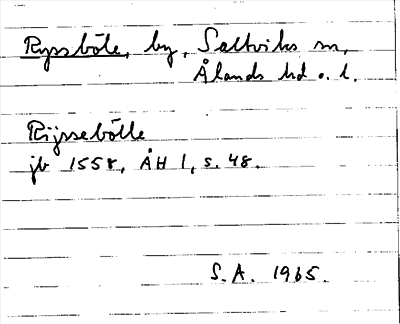 Ryssböle, by, Saltviks sn,
Ålands hd o. l.
Rijssebölle
jb 1558, ÅH 1, s. 48.
S.A. 1965.